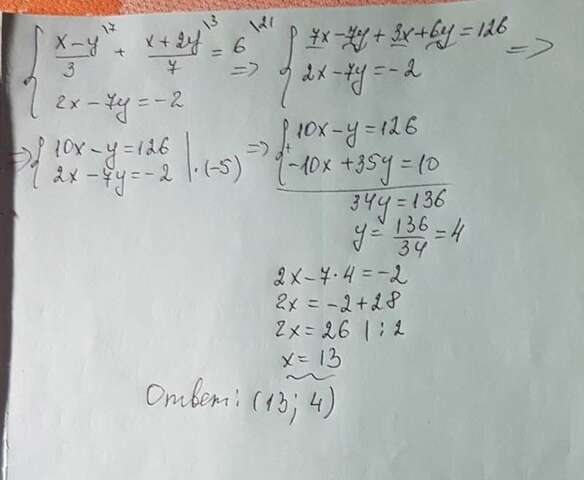 { (x-y)/3 \7 + (x+2y)/7 \3 = 6 \21 => { 7x-7y+3x+6y=126 =>
2x-7y=-2 2x-7y=-2
=> { 10x-y=126 => { 10x-y=126
2x-7y=-2 | ·(-5) + -10x+35y=10
34y=136
y= 136/34 =4
2x-7·4=-2
2x=-2+28
2x=26 |:2
x=13
Ответ: (13; 4)